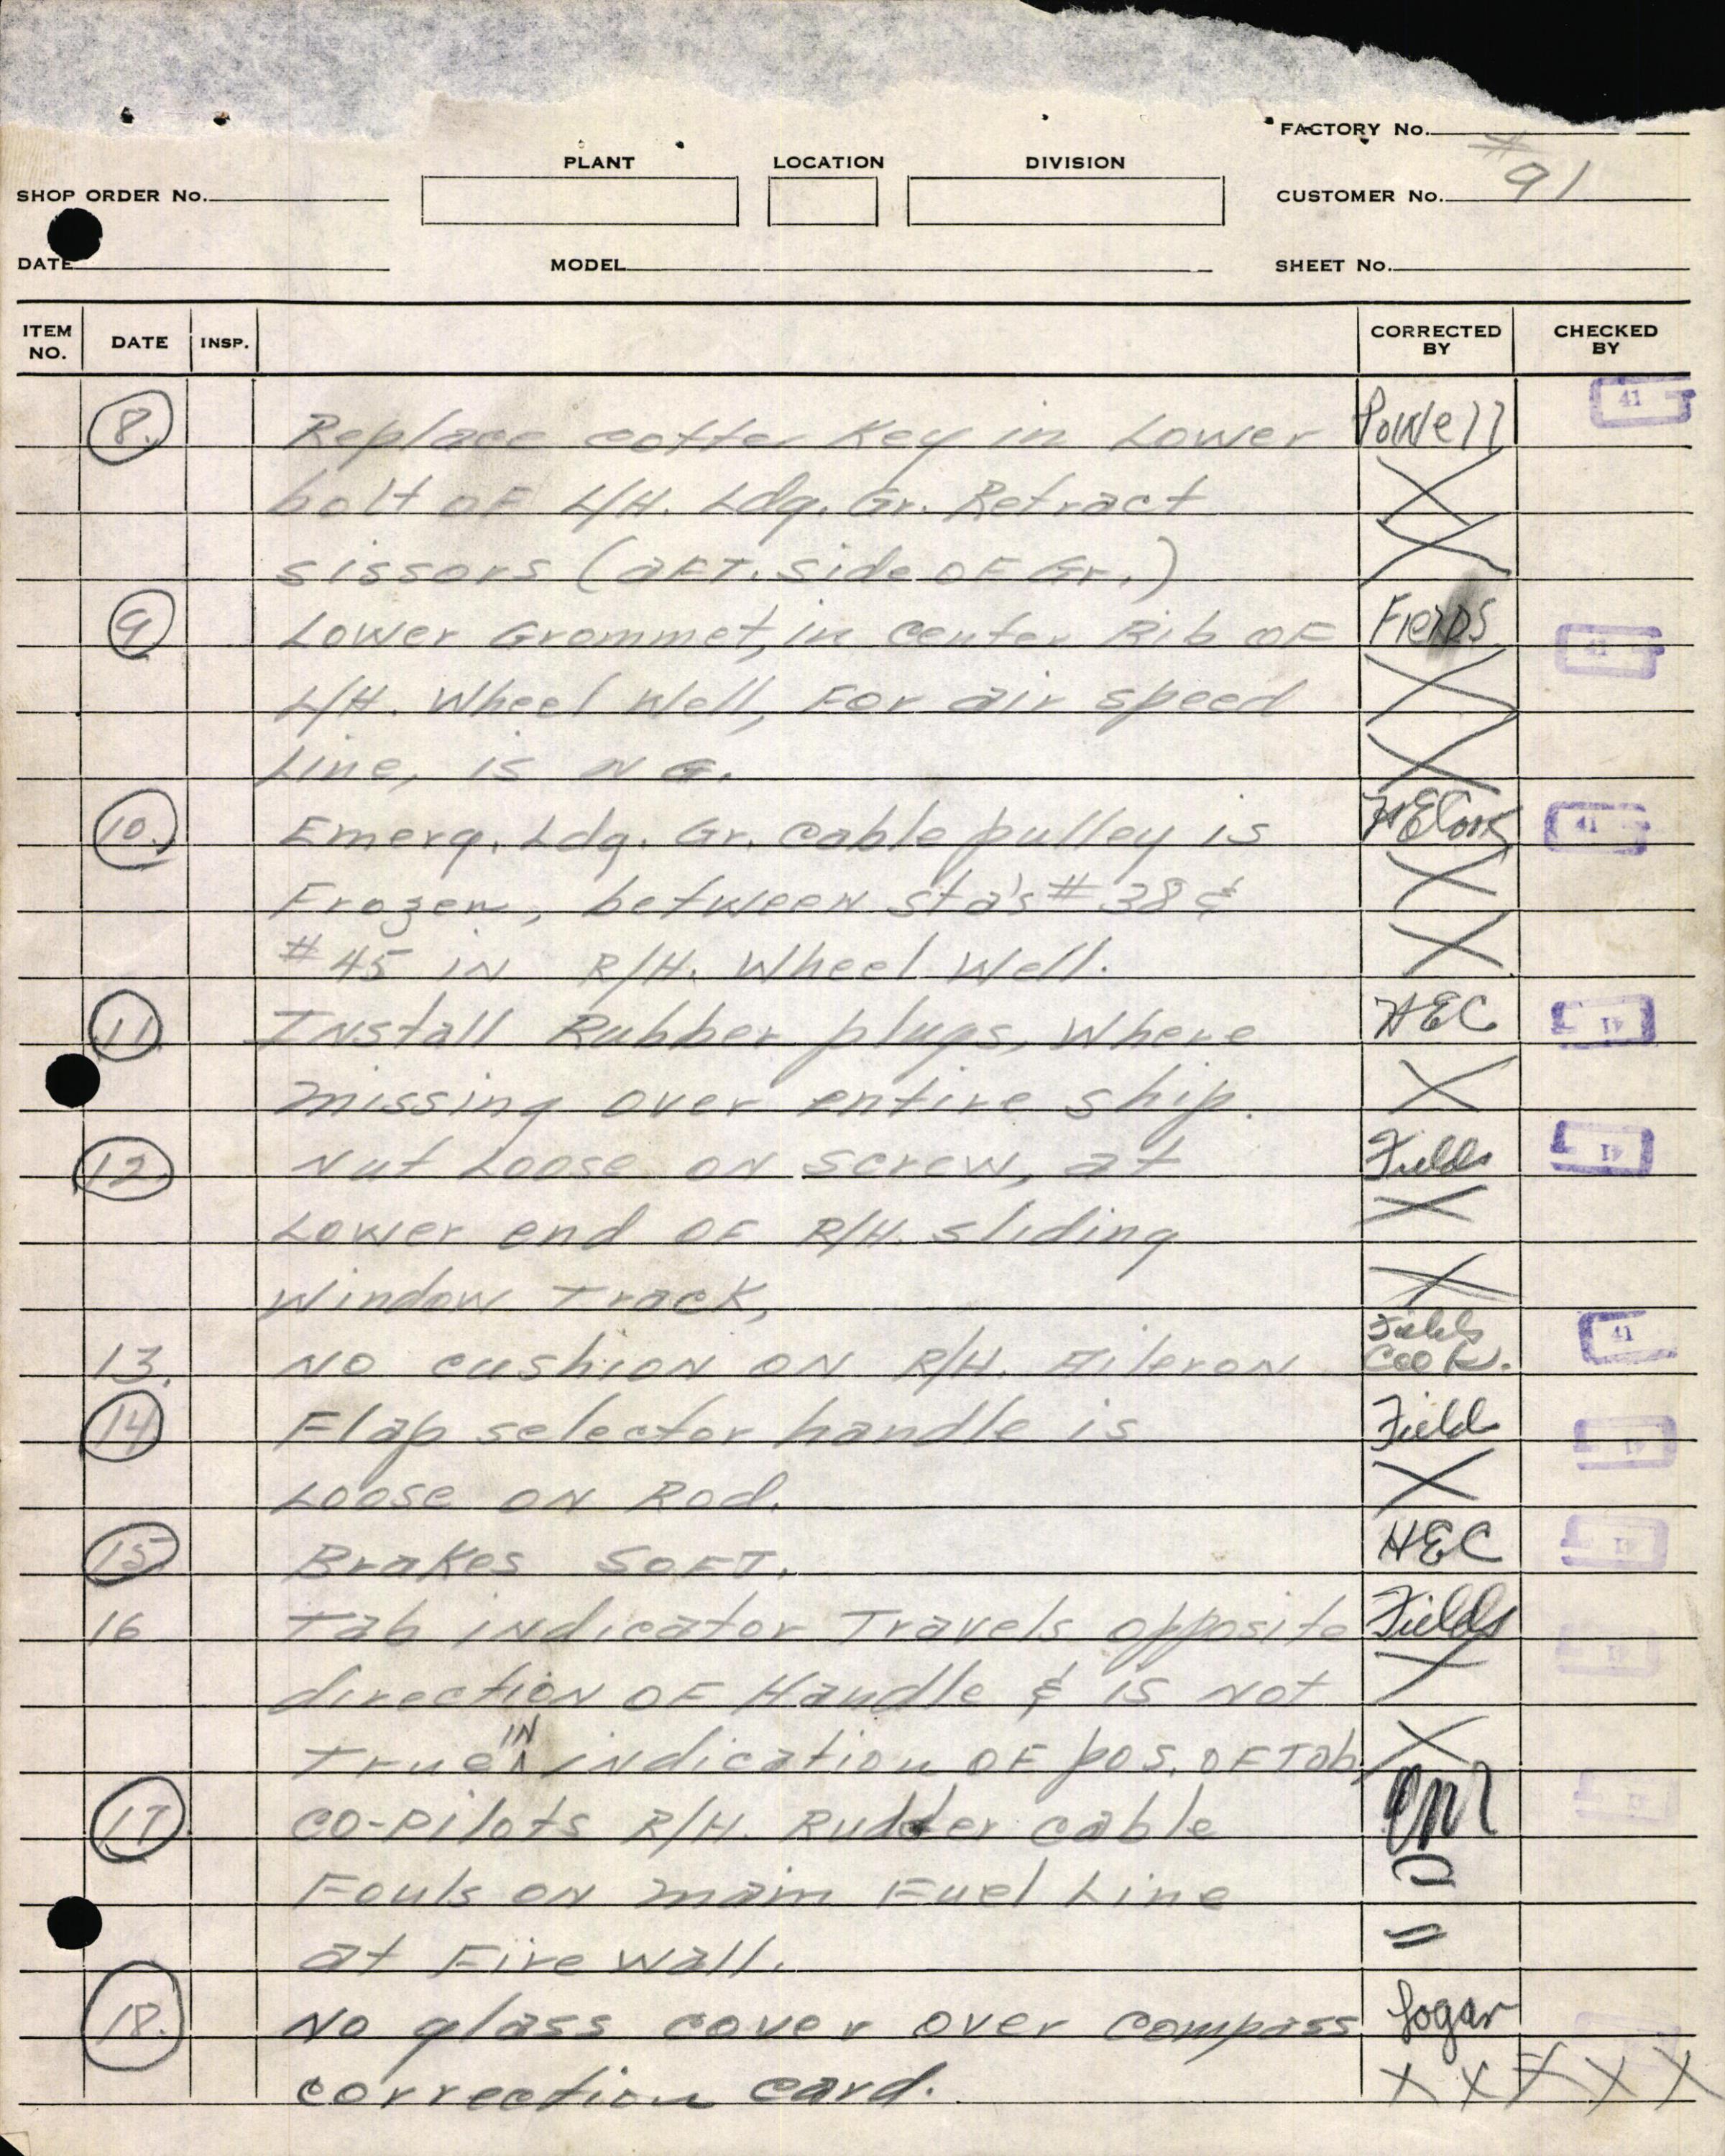 FACTORY No.
PLANT LOCATION DIVISION
# 91
SHOP ORDER No. CUSTOMER No.
DATE MODEL SHEET No.
ITEM NO. DATE INSP. CORRECTED BY CHECKED BY
8. Replace cotter Key in Lower Powell 41
bolt OF L/H. Ldg. Gr. Retract X
sissors (aFT. side OF Gr.) X
9 Lower Grommet, in center Rib OF Fields 41
L/H. Wheel Well, For air speed X
Line, is NG. X
10. Emerg. Ldg. Gr. cable pulley is 41
Frozen, between sta's # 38 & X
# 45 in R/H. Wheel Well. X
11 INstall Rubber plugs, Where HEC 41
missing over entire ship. X
12. Nut Loose ON screw, at Fields 41
Lower end OF R/H. sliding X
Window Track, X
13. NO cushion ON R/H. Aileron Fields Cook. 41
14 Flap selector handle is Field 41
Loose ON Rod. X
15 Brakes SOFT. HEC 41
16 Tab indicator Travels opposite Fields 41
direction OF Handle & is not X
True IN indication OF pos. OF Tab X
17 CO-Pilots R/H. Rudder cable 41
Fouls on main Fuel Line
at Fire wall. =
18. No glass cover over compass Logar
correction card. X X X X X